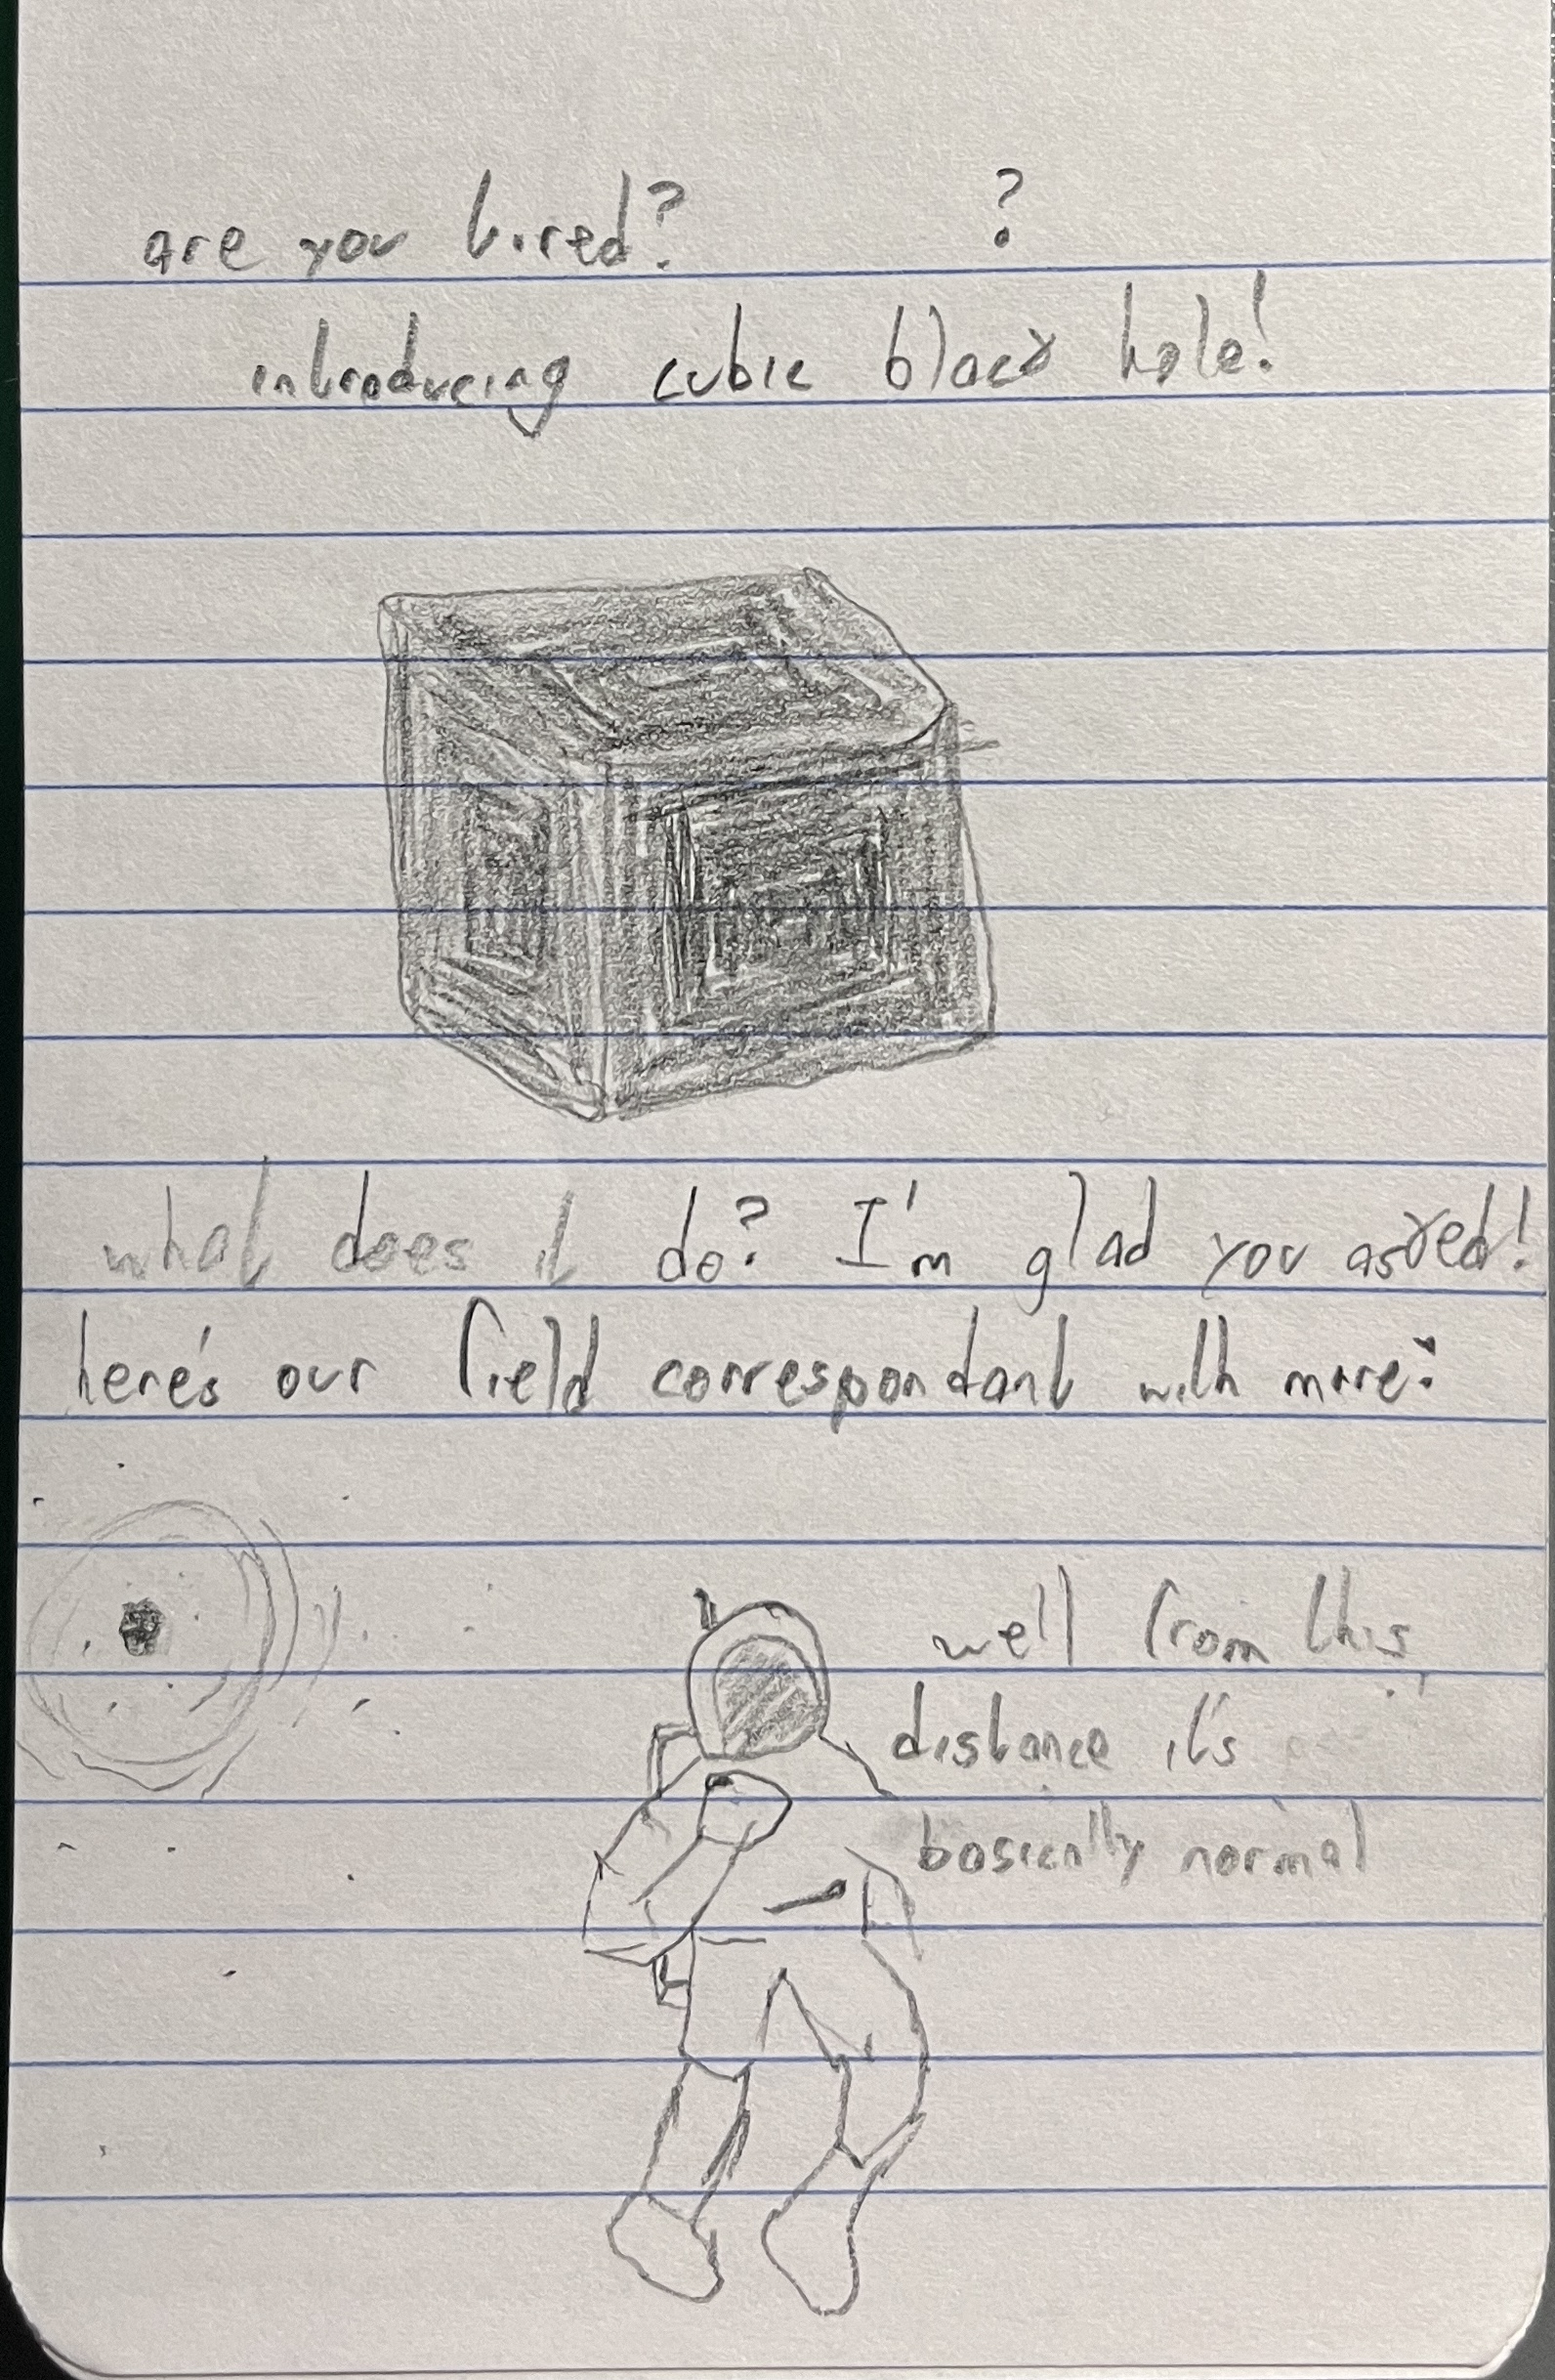 are you tired? ?
introducing cubic black hole!
what does it do? I'm glad you asked!
here's our field correspondant with more:
well from this,
distance it's
basically normal